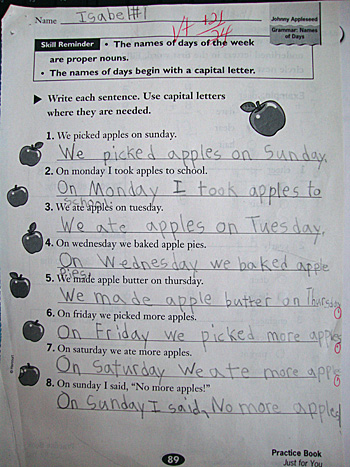 Name Isabel #1
√+ +21/24
Johnny Appleseed
Grammar: Names
of Days
Skill Reminder • The names of days of the week
are proper nouns.
• The names of days begin with a capital letter.
▶ Write each sentence. Use capital letters
where they are needed.
1. We picked apples on sunday.
We picked apples on Sunday.
2. On monday I took apples to school.
On Monday I took apples to
school.
3. We ate apples on tuesday.
We ate apples on Tuesday.
4. On wednesday we baked apple pies.
On Wednesday we baked apple
pies.
5. We made apple butter on thursday.
We made apple butter on Thursday
6. On friday we picked more apples.
On Friday we picked more apples
7. On saturday we ate more apples.
On Saturday we ate more apples
8. On sunday I said, "No more apples!"
On Sunday I said, No more apples
89
Practice Book
Just for You